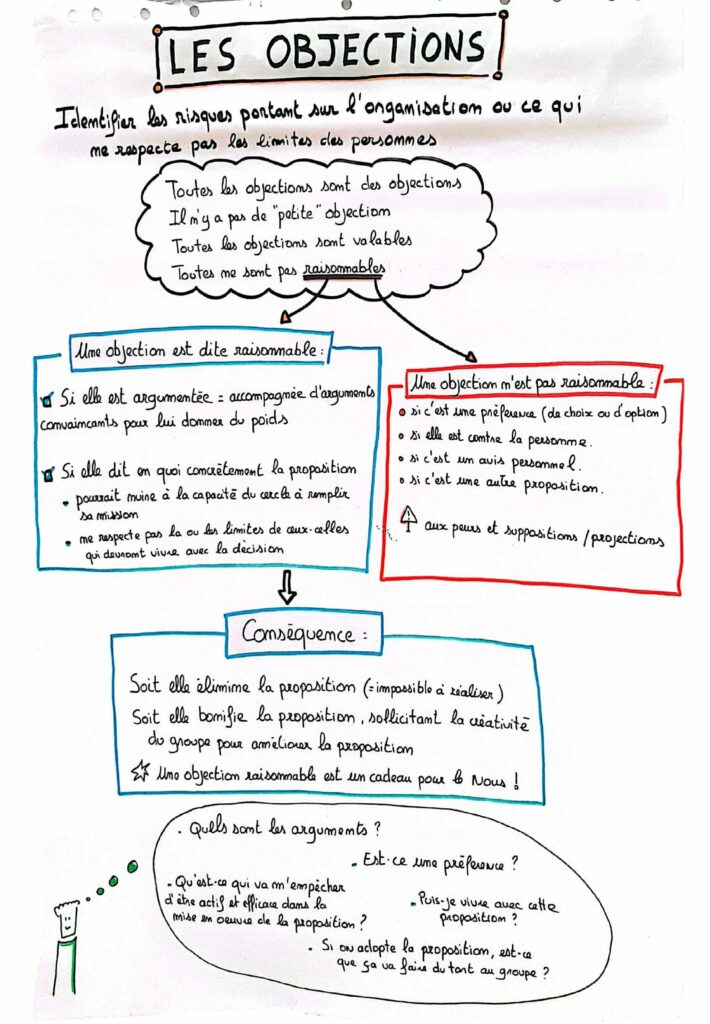 LES OBJECTIONS
Identifier les risques portant sur l'organisation ou ce qui
ne respecte pas les limites des personnes
Toutes les objections sont des objections
Il n'y a pas de "petite" objection
Toutes les objections sont valables
Toutes ne sont pas raisonnables
Une objection est dite raisonnable :
Si elle est argumentée = accompagnée d'arguments
convaincants pour lui donner du poids
Si elle dit en quoi concrètement la proposition
• pourrait nuire à la capacité du cercle à remplir
sa mission
• ne respecte pas la ou les limites de ceux-celles
qui devront vivre avec la décision
Une objection n'est pas raisonnable :
• si c'est une préférence (de choix ou d'option)
• si elle est contre la personne.
• si c'est un avis personnel.
• si c'est une autre proposition.
! aux peurs et suppositions / projections
Conséquence :
Soit elle élimine la proposition (= impossible à réaliser)
Soit elle bonifie la proposition, sollicitant la créativité
du groupe pour améliorer la proposition
Une objection raisonnable est un cadeau pour le Nous !
. Quels sont les arguments ?
. Est-ce une préférence ?
. Qu'est-ce qui va m'empêcher
d'être actif et efficace dans la
mise en oeuvre de la proposition ?
. Puis-je vivre avec cette
proposition ?
. Si on adopte la proposition, est-ce
que ça va faire du tort au groupe ?